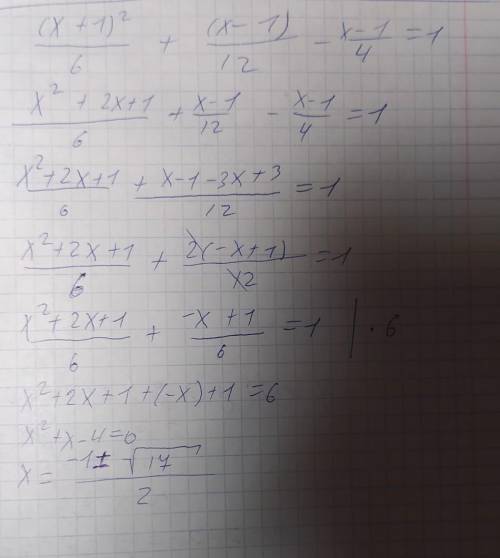 (x + 1)²/6 + (x - 1)/12 - x-1/4 = 1
x² + 2x+1/6 + x-1/12 - x-1/4 = 1
x²+2x+1/6 + x-1-3x+3/12 = 1
x²+2x+1/6 + 2(-x+1)/12 = 1
x²+2x+1/6 + -x+1/6 = 1 | · 6
x²+2x+1+(-x)+1 = 6
x²+x-4=0
x = -1± √17/2